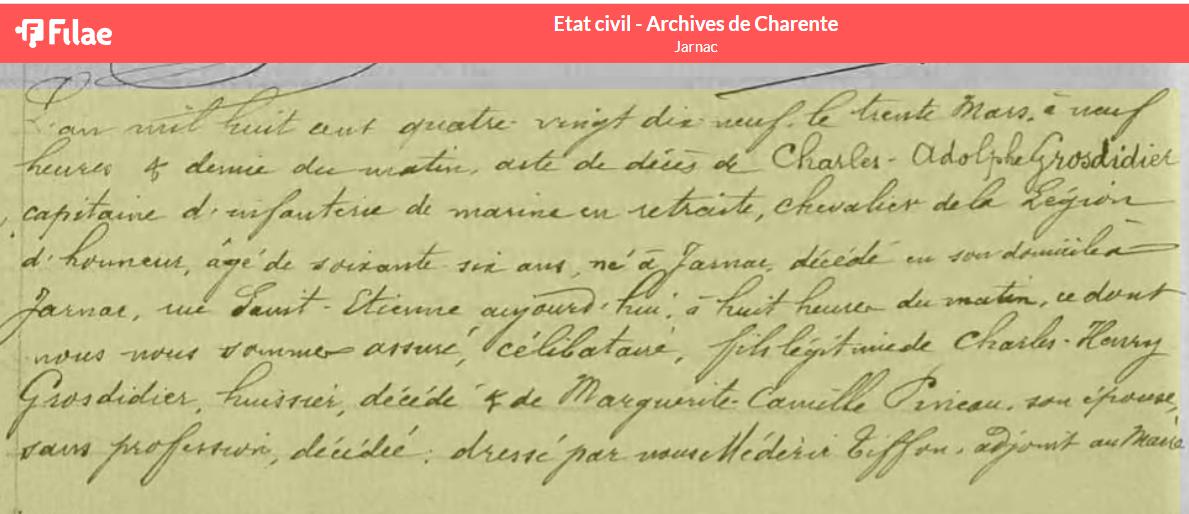 Filae
Etat civil - Archives de Charente
Jarnac
L'an mil huit cent quatre-vingt dix-neuf, le trente Mars, à neuf
heures & demie du matin, acte de décès de Charles-Adolphe Grosdidier
capitaine d'infanterie de marine en retraite, chevalier de la Légion
d'honneur, âgé de soixante six ans, né à Jarnac, décédé en son domicile à
Jarnac, rue Saint-Etienne aujourd'hui, à huit heures du matin, ce dont
nous nous sommes assuré, célibataire, fils légitime de Charles-Henry
Grosdidier, huissier, décédé & de Marguerite-Camille Pineau, son épouse,
sans profession, décédée; dressé par nous Médéric Tiffon, adjoint au Maire